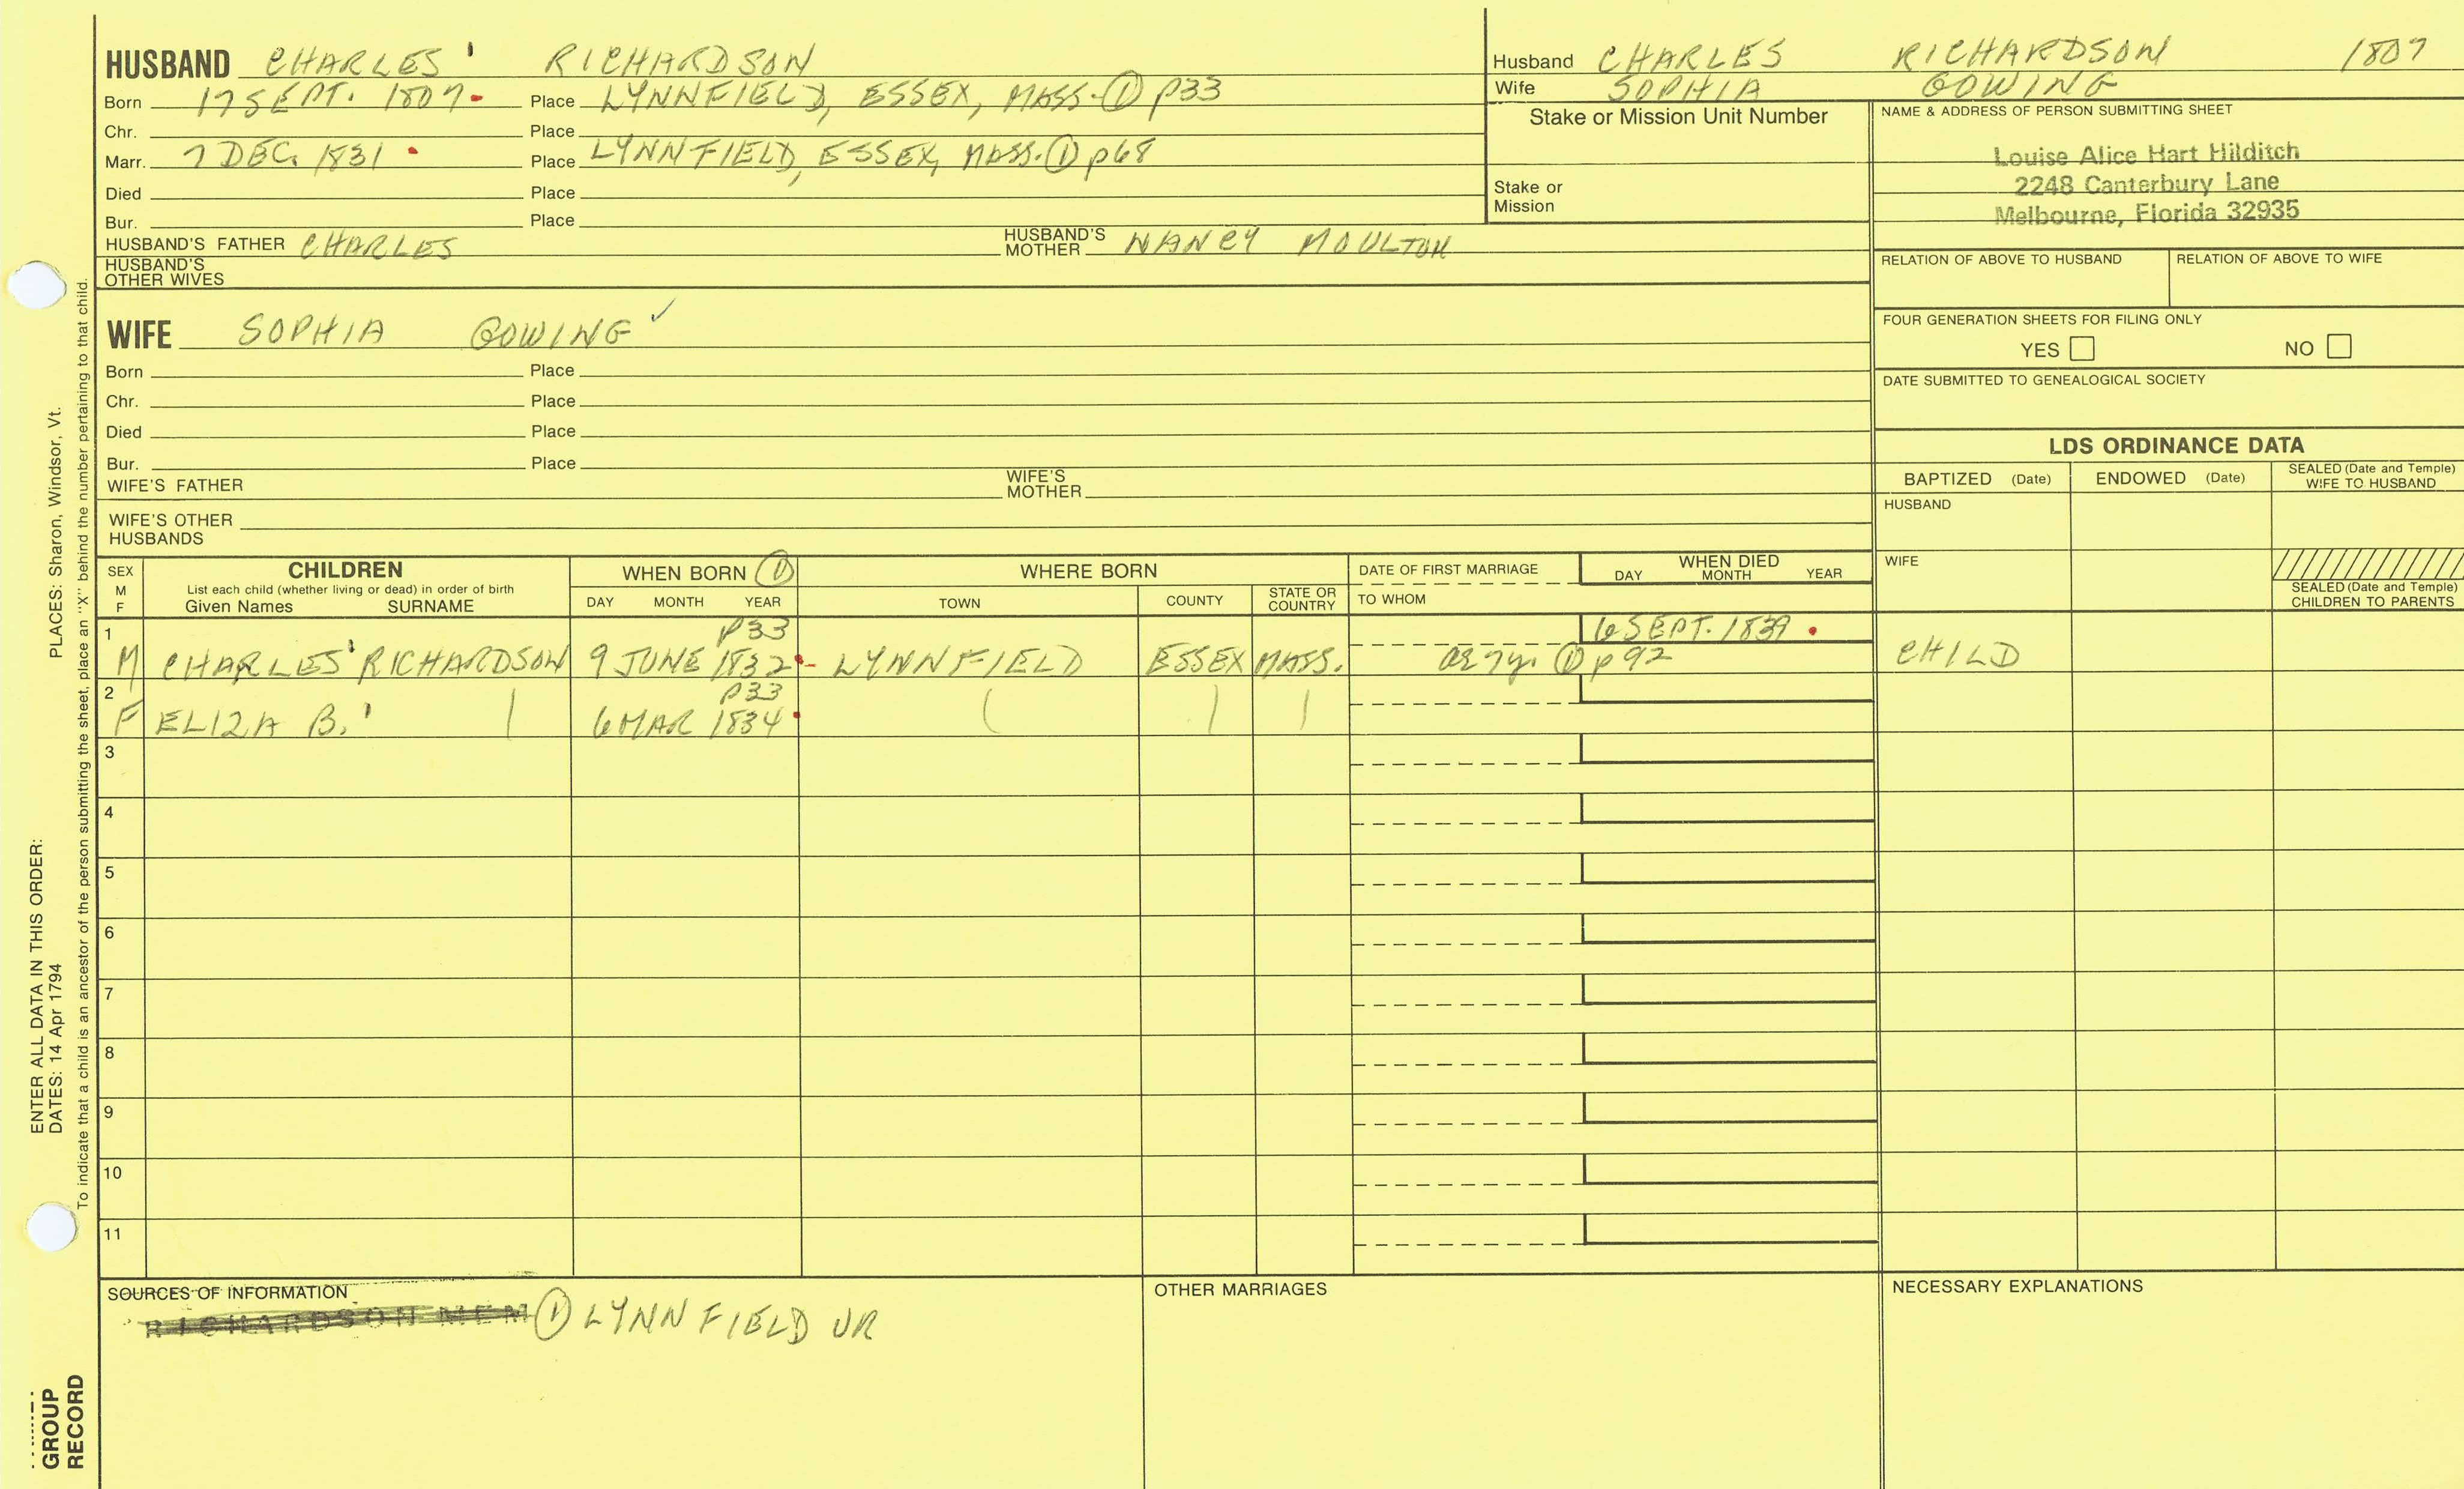 HUSBAND CHARLES RICHARDSON
Born 17 SEPT. 1807 Place LYNNFIELD, ESSEX, MASS. ① p33
Chr. Place
Marr. 7 DEC. 1831 Place LYNNFIELD, ESSEX, MASS. ① p68
Died Place
Bur. Place
HUSBAND'S FATHER CHARLES HUSBAND'S MOTHER NANCY MOULTON
HUSBAND'S OTHER WIVES
Husband CHARLES RICHARDSON 1807
Wife SOPHIA GOWING
Stake or Mission Unit Number
Stake or Mission
NAME & ADDRESS OF PERSON SUBMITTING SHEET
Louise Alice Hart Hilditch
2248 Canterbury Lane
Melbourne, Florida 32935
RELATION OF ABOVE TO HUSBAND RELATION OF ABOVE TO WIFE
FOUR GENERATION SHEETS FOR FILING ONLY
YES NO
DATE SUBMITTED TO GENEALOGICAL SOCIETY
WIFE SOPHIA GOWING ✓
Born Place
Chr. Place
Died Place
Bur. Place
WIFE'S FATHER WIFE'S MOTHER
WIFE'S OTHER HUSBANDS
LDS ORDINANCE DATA
BAPTIZED (Date) ENDOWED (Date) SEALED (Date and Temple) WIFE TO HUSBAND
HUSBAND
WIFE
SEALED (Date and Temple) CHILDREN TO PARENTS
SEX M F
CHILDREN
List each child (whether living or dead) in order of birth
Given Names SURNAME
WHEN BORN ①
DAY MONTH YEAR
WHERE BORN
TOWN COUNTY STATE OR COUNTRY
DATE OF FIRST MARRIAGE
TO WHOM
WHEN DIED
DAY MONTH YEAR
1 p33 6 SEPT. 1839
M CHARLES RICHARDSON 9 JUNE 1832 LYNNFIELD ESSEX MASS. ae 7y. ① p92 CHILD
2 p33
F ELIZA B. 6 MAR 1834
3
4
5
6
7
8
9
10
11
SOURCES OF INFORMATION
RICHARDSON MEM ① LYNNFIELD VR
OTHER MARRIAGES
NECESSARY EXPLANATIONS
ENTER ALL DATA IN THIS ORDER:
DATES: 14 Apr 1794 PLACES: Sharon, Windsor, Vt.
To indicate that a child is an ancestor of the person submitting the sheet, place an "X" behind the number pertaining to that child.
GROUP
RECORD